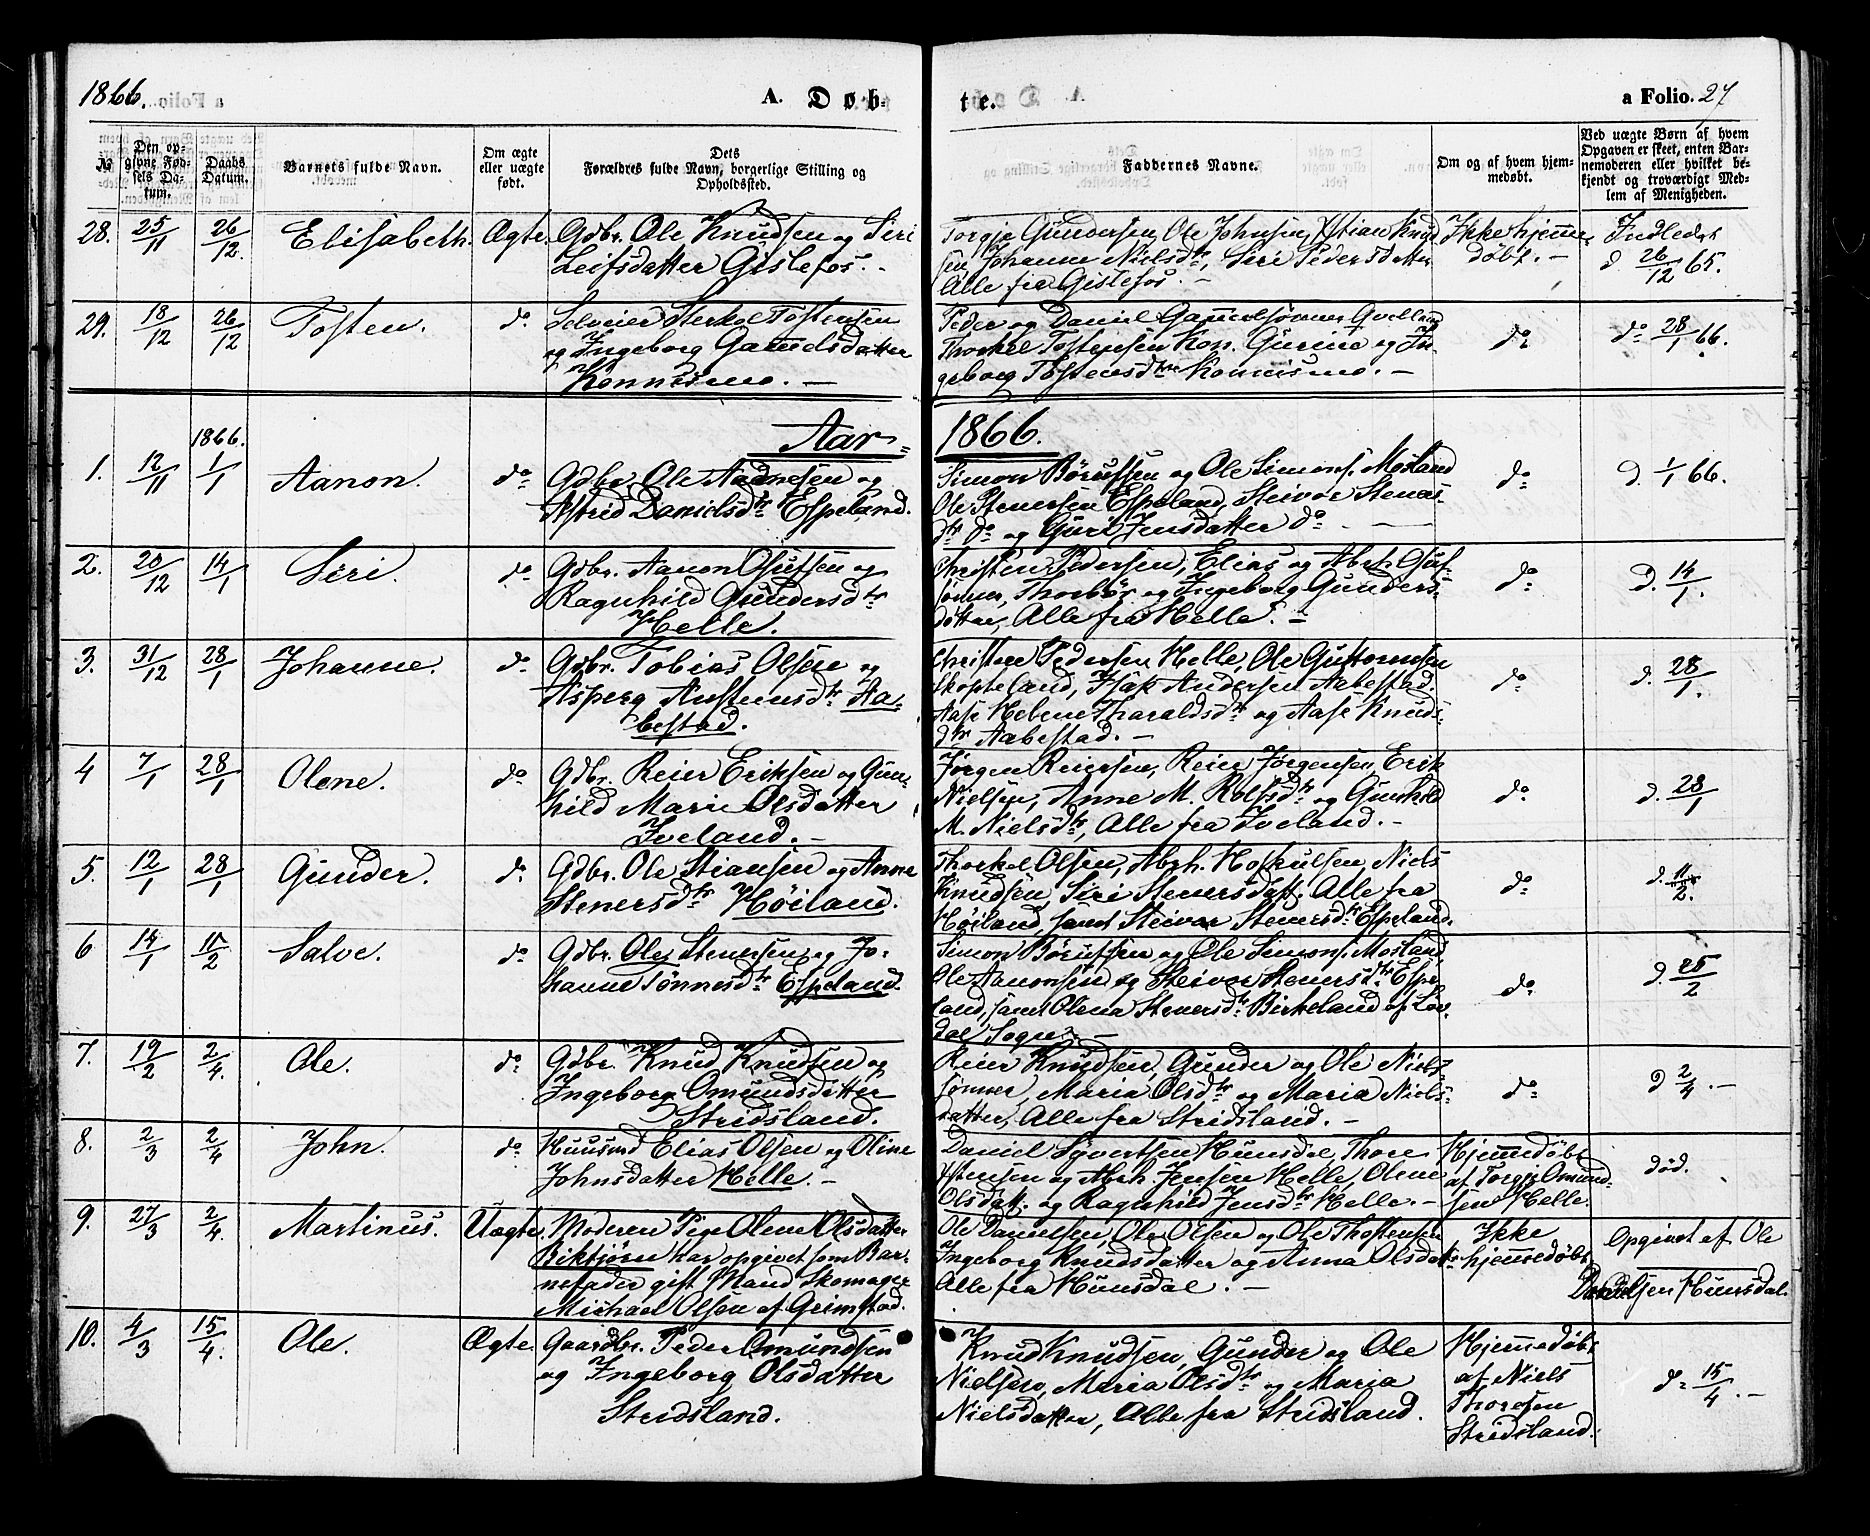 1866.
A. Døb-
te.
a Folio. 27
№
Den op-
givne Fød-
sels Da-
tum.
Daabs
Datum.
Barnets fulde Navn.
Om ægte
eller uægte
født.
Dets
Forældres fulde Navn, borgerlige Stilling og
Opholdssted.
Faddernes Navne.
Om og af hvem hjem-
medøbt.
Ved uægte Børn af hvem
Opgaven er skeet, enten Bar-
nemoderen eller hvilket be-
kjendt og troværdigt Med-
lem af Menigheden.
28. 25/11 26/12. Elisabeth. Ægte. Gdbr. Ole Knudsen og Siri
Leifsdatter Gislefos. -
Torgje Gundersen, Ole Johnsen, Stian Knud
sen, Johanne Nielsdtr, Siri Pedersdatter
Alle fra Gislefos. -
Ikke hjemme
døbt. -
Indledet
d. 26/12 65.
29. 18/12 26/12 Tosten. do
Selveier Terkel Tostensen
og Ingeborg Gamelsdatter
Konnismo. -
Peder og Daniel Gamelsønner
Thorkel Tostensen Kon. Gurine og In-
geborg Tostensdtre Konnismo. -
do
do 28/1 66.
Aar = 1866.
1866.
1. 12/11 1/1 Aanon. do
Gdbr. Ole Aadnesen og
Astrid Danielsdtr Espeland.
Simon Børufsen og Ole Simons. Mosland
Ole Stenersen Espeland, Steivor Steners-
dtr do og Guri Jensdatter do -
do
D. 1/1 66.
2. 20/12 14/1 Siri. do
Gdbr. Aanon Olufsen og
Ragnhild Gundersdtr
Helle.
Christen Pedersen, Elias og Abrh. Oluf-
sønner, Thorbør og Ingeborg Gunders-
døttre, Alle fra Helle. -
do
D. 14/1.
3. 31/12 28/1 Johanne. do
Gdbr. Tobias Olsen og
Asperg Anstensdtr Aa-
bestad.
Christen Pedersen Helle, Ole Guttormsen
Skopteland, Isak Andersen Aabestad.
Aase Helene Tharaldsdtr og Aase Knuds-
dtr Aabestad. -
do
d. 28/1.
4 7/1 28/1 Olene. do
Gdbr. Reier Eriksen og Gun-
hild Marie Olsdatter
Iveland. -
Jørgen Reiersen, Reier Jørgensen, Erik
Nielsen, Anne M. Rolfsdtr og Gunhild
M. Nielsdtr, Alle fra Iveland. -
do
d. 28/1
5. 12/1 28/1 Gunder. do
Gdbr. Ole Stiansen og Anne
Stenersdtr Høiland.
Thorkel Olsen, Abrh. Hoskulsen, Niels
Knudsen, Siri Stenersdatt. Alle fra
Høiland, samt Steivor Stenersdtr Espeland.
do
d. 11/2.
6 14/1 11/2 Salve. do
Gdbr. Ole Stenersen og Jo-
hanne Tønnesdtr Espeland.
Simon Børufsen og Ole Simons. Mosland,
Ole Aanonsen og Steivor Stenersdtr Espe-
land, samt Olena Stenersdtr Birkeland af Løv-
dal Sogn. -
do
d. 25/2
7. 19/2 2/4. Ole. do
Gdbr. Knud Knudsen og
Ingeborg Omundsdatter
Stridsland.
Reier Knudsen, Gunder og Ole Niels-
sønner, Maria Olsdtr og Maria Niels-
datter, Alle fra Stridsland. -
do
d 2/4. -
8. 2/3 2/4 John. do
Huusmd Elias Olsen og Oline
Johnsdatter Helle. -
Daniel Syvertsen Hunsdal, Thore
Ostensen og Abrh. Jensen Helle, Olene
Olsdatt. og Ragnhild Jensdtr Helle. -
Hjemmedøbt
af Torgje Omund-
sen Helle.
død.
9. 27/3 2/4. Martinus. Uægte.
Moderen Pige Olene Olsdatter
Birktjøn har opgivet som Bar-
nefader gift Mand Skomager
Michael Olsen af Grimstad.
Ole Danielsen, Ole Olsen og Ole Thostensen
Ingeborg Knudsdatter og Anna Olsdatr
Alle fra Hunsdal. -
Ikke
hjemmedøbt
Opgivet af Ole
Danielsen Hunsdal.
10. 4/3 15/4. Ole. Ægte.
Gaardbr. Peder Omundsen
og Ingeborg Olsdatter
Stridsland.
Knud Knudsen, Gunder og Ole
Nielsen, Maria Olsdtr og Maria
Nielsdatter, Alle fra Stridsland.
Hjemmedøbt
af Niels
Thorsen
Stridsland.
d- 15/4. -